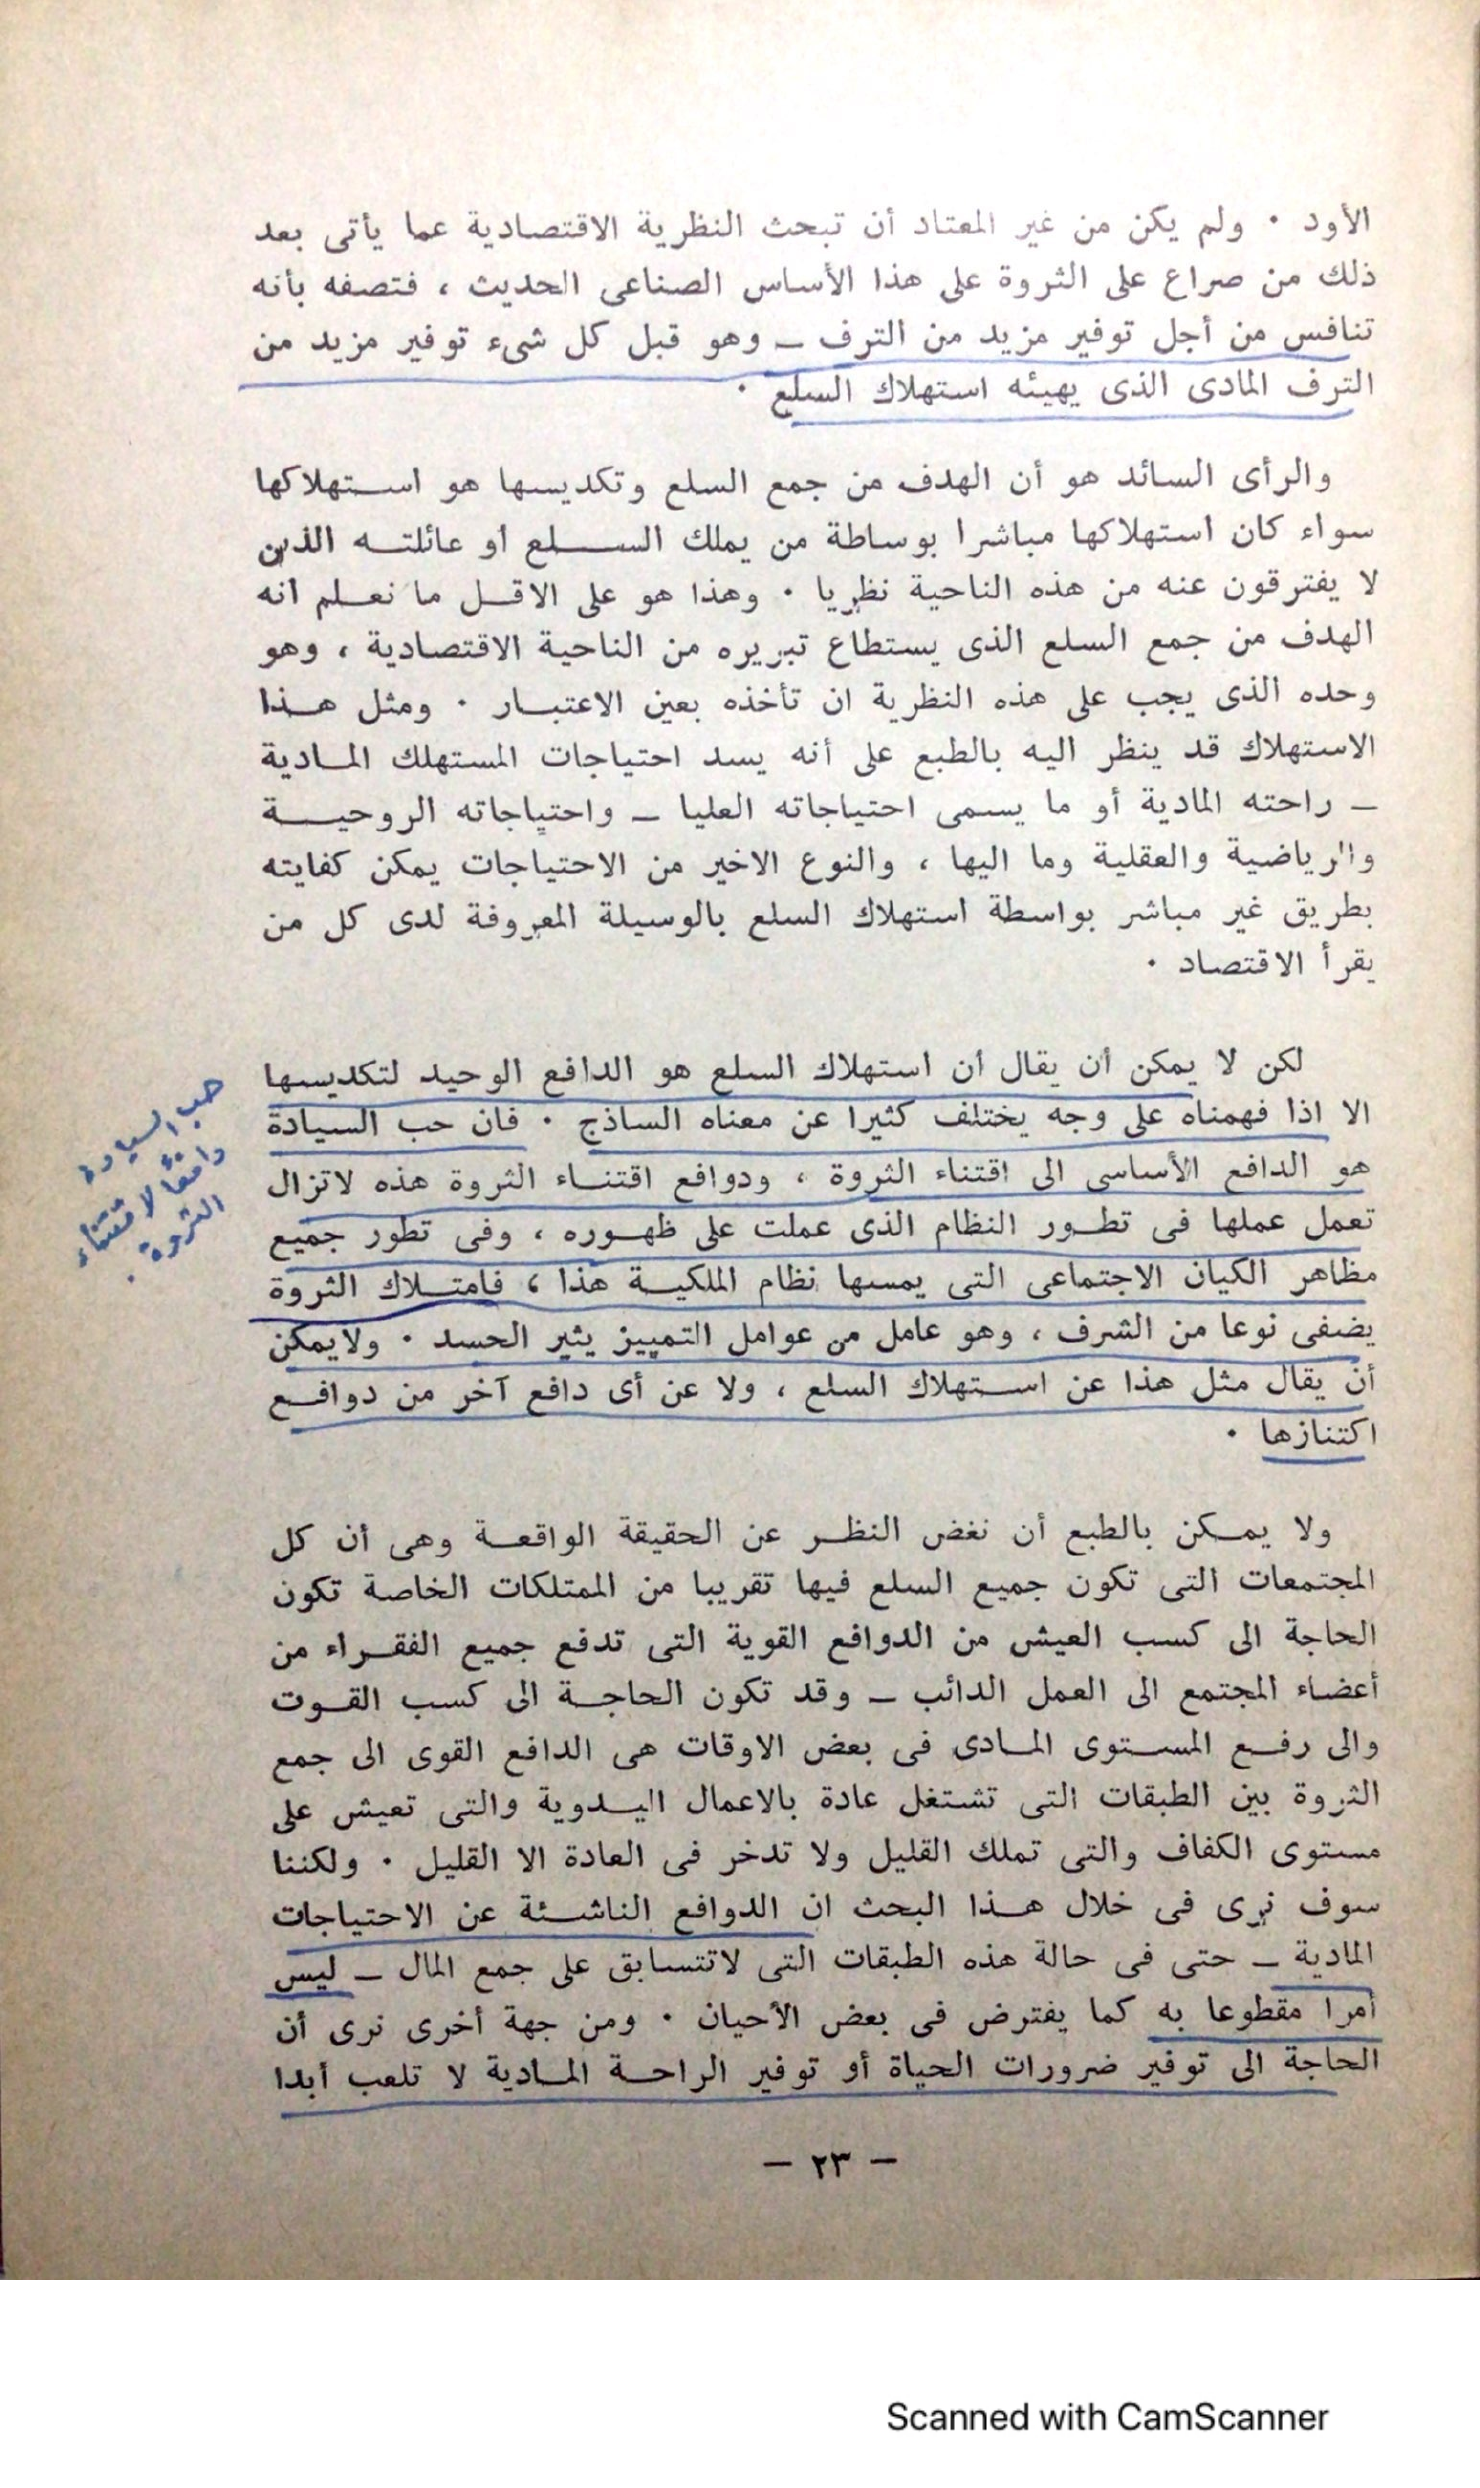 الأود ٠ ولم يكن من غير المعتاد أن تبحث النظرية الاقتصادية عما يأتى بعد
ذلك من صراع على الثروة على هذا الأساس الصناعى الحديث ، فتصفه بأنه
تنافس من أجل توفير مزيد من الترف ــ وهو قبل كل شىء توفير مزيد من
الترف المادى الذى يهيئه استهلاك السلع ٠
والرأى السائد هو أن الهدف من جمع السلع وتكديسها هو استهلاكها
سواء كان استهلاكها مباشرا بوساطة من يملك السلع او عائلته الذين
لا يفترقون عنه من هذه الناحية نظريا ٠ وهذا هو على الاقل ما نعلم انه
الهدف من جمع السلع الذى يستطاع تبريره من الناحية الاقتصادية ، وهو
وحده الذى يجب على هذه النظرية ان تأخذه بعين الاعتبار ٠ ومثل هذا
الاستهلاك قد ينظر اليه بالطبع على أنه يسد احتياجات المستهلك المادية
ــ راحته المادية أو ما يسمى احتياجاته العليا ــ واحتياجاته الروحية
والرياضية والعقلية وما اليها ، والنوع الاخير من الاحتياجات يمكن كفايته
بطريق غير مباشر بواسطة استهلاك السلع بالوسيلة المعروفة لدى كل من
يقرأ الاقتصاد ٠
لكن لا يمكن أن يقال ان استهلاك السلع هو الدافع الوحيد لتكديسها
الا اذا فهمناه على وجه يختلف كثيرا عن معناه الساذج ٠ فان حب السيادة
هو الدافع الأساسى الى اقتناء الثروة ، ودوافع اقتناء الثروة هذه لاتزال
تعمل عملها فى تطور النظام الذى عملت على ظهوره ، وفى تطور جميع
مظاهر الكيان الاجتماعى التى يمسها نظام الملكية هذا ، فامتلاك الثروة
يضفى نوعا من الشرف ، وهو عامل من عوامل التمييز يثير الحسد ٠ ولايمكن
أن يقال مثل هذا عن استهلاك السلع ، ولا عن أى دافع آخر من دوافع
اكتنازها ٠
حب السيادة
دافعًا لاقتناء
الثروة.
ولا يمكن بالطبع أن نغض النظر عن الحقيقة الواقعة وهى أن كل
المجتمعات التى تكون جميع السلع فيها تقريبا من الممتلكات الخاصة تكون
الحاجة الى كسب العيش من الدوافع القوية التى تدفع جميع الفقراء من
أعضاء المجتمع الى العمل الدائب ــ وقد تكون الحاجة الى كسب القوت
والى رفع المستوى المادى فى بعض الاوقات هى الدافع القوى الى جمع
الثروة بين الطبقات التى تشتغل عادة بالاعمال اليدوية والتى تعيش على
مستوى الكفاف والتى تملك القليل ولا تدخر فى العادة الا القليل ٠ ولكننا
سوف نرى فى خلال هذا البحث ان الدوافع الناشئة عن الاحتياجات
المادية ــ حتى فى حالة هذه الطبقات التى لاتتسابق على جمع المال ــ ليس
أمرا مقطوعا به كما يفترض فى بعض الأحيان ٠ ومن جهة أخرى نرى أن
الحاجة الى توفير ضرورات الحياة أو توفير الراحة المادية لا تلعب أبدا
ــ ٢٣ ــ
Scanned with CamScanner